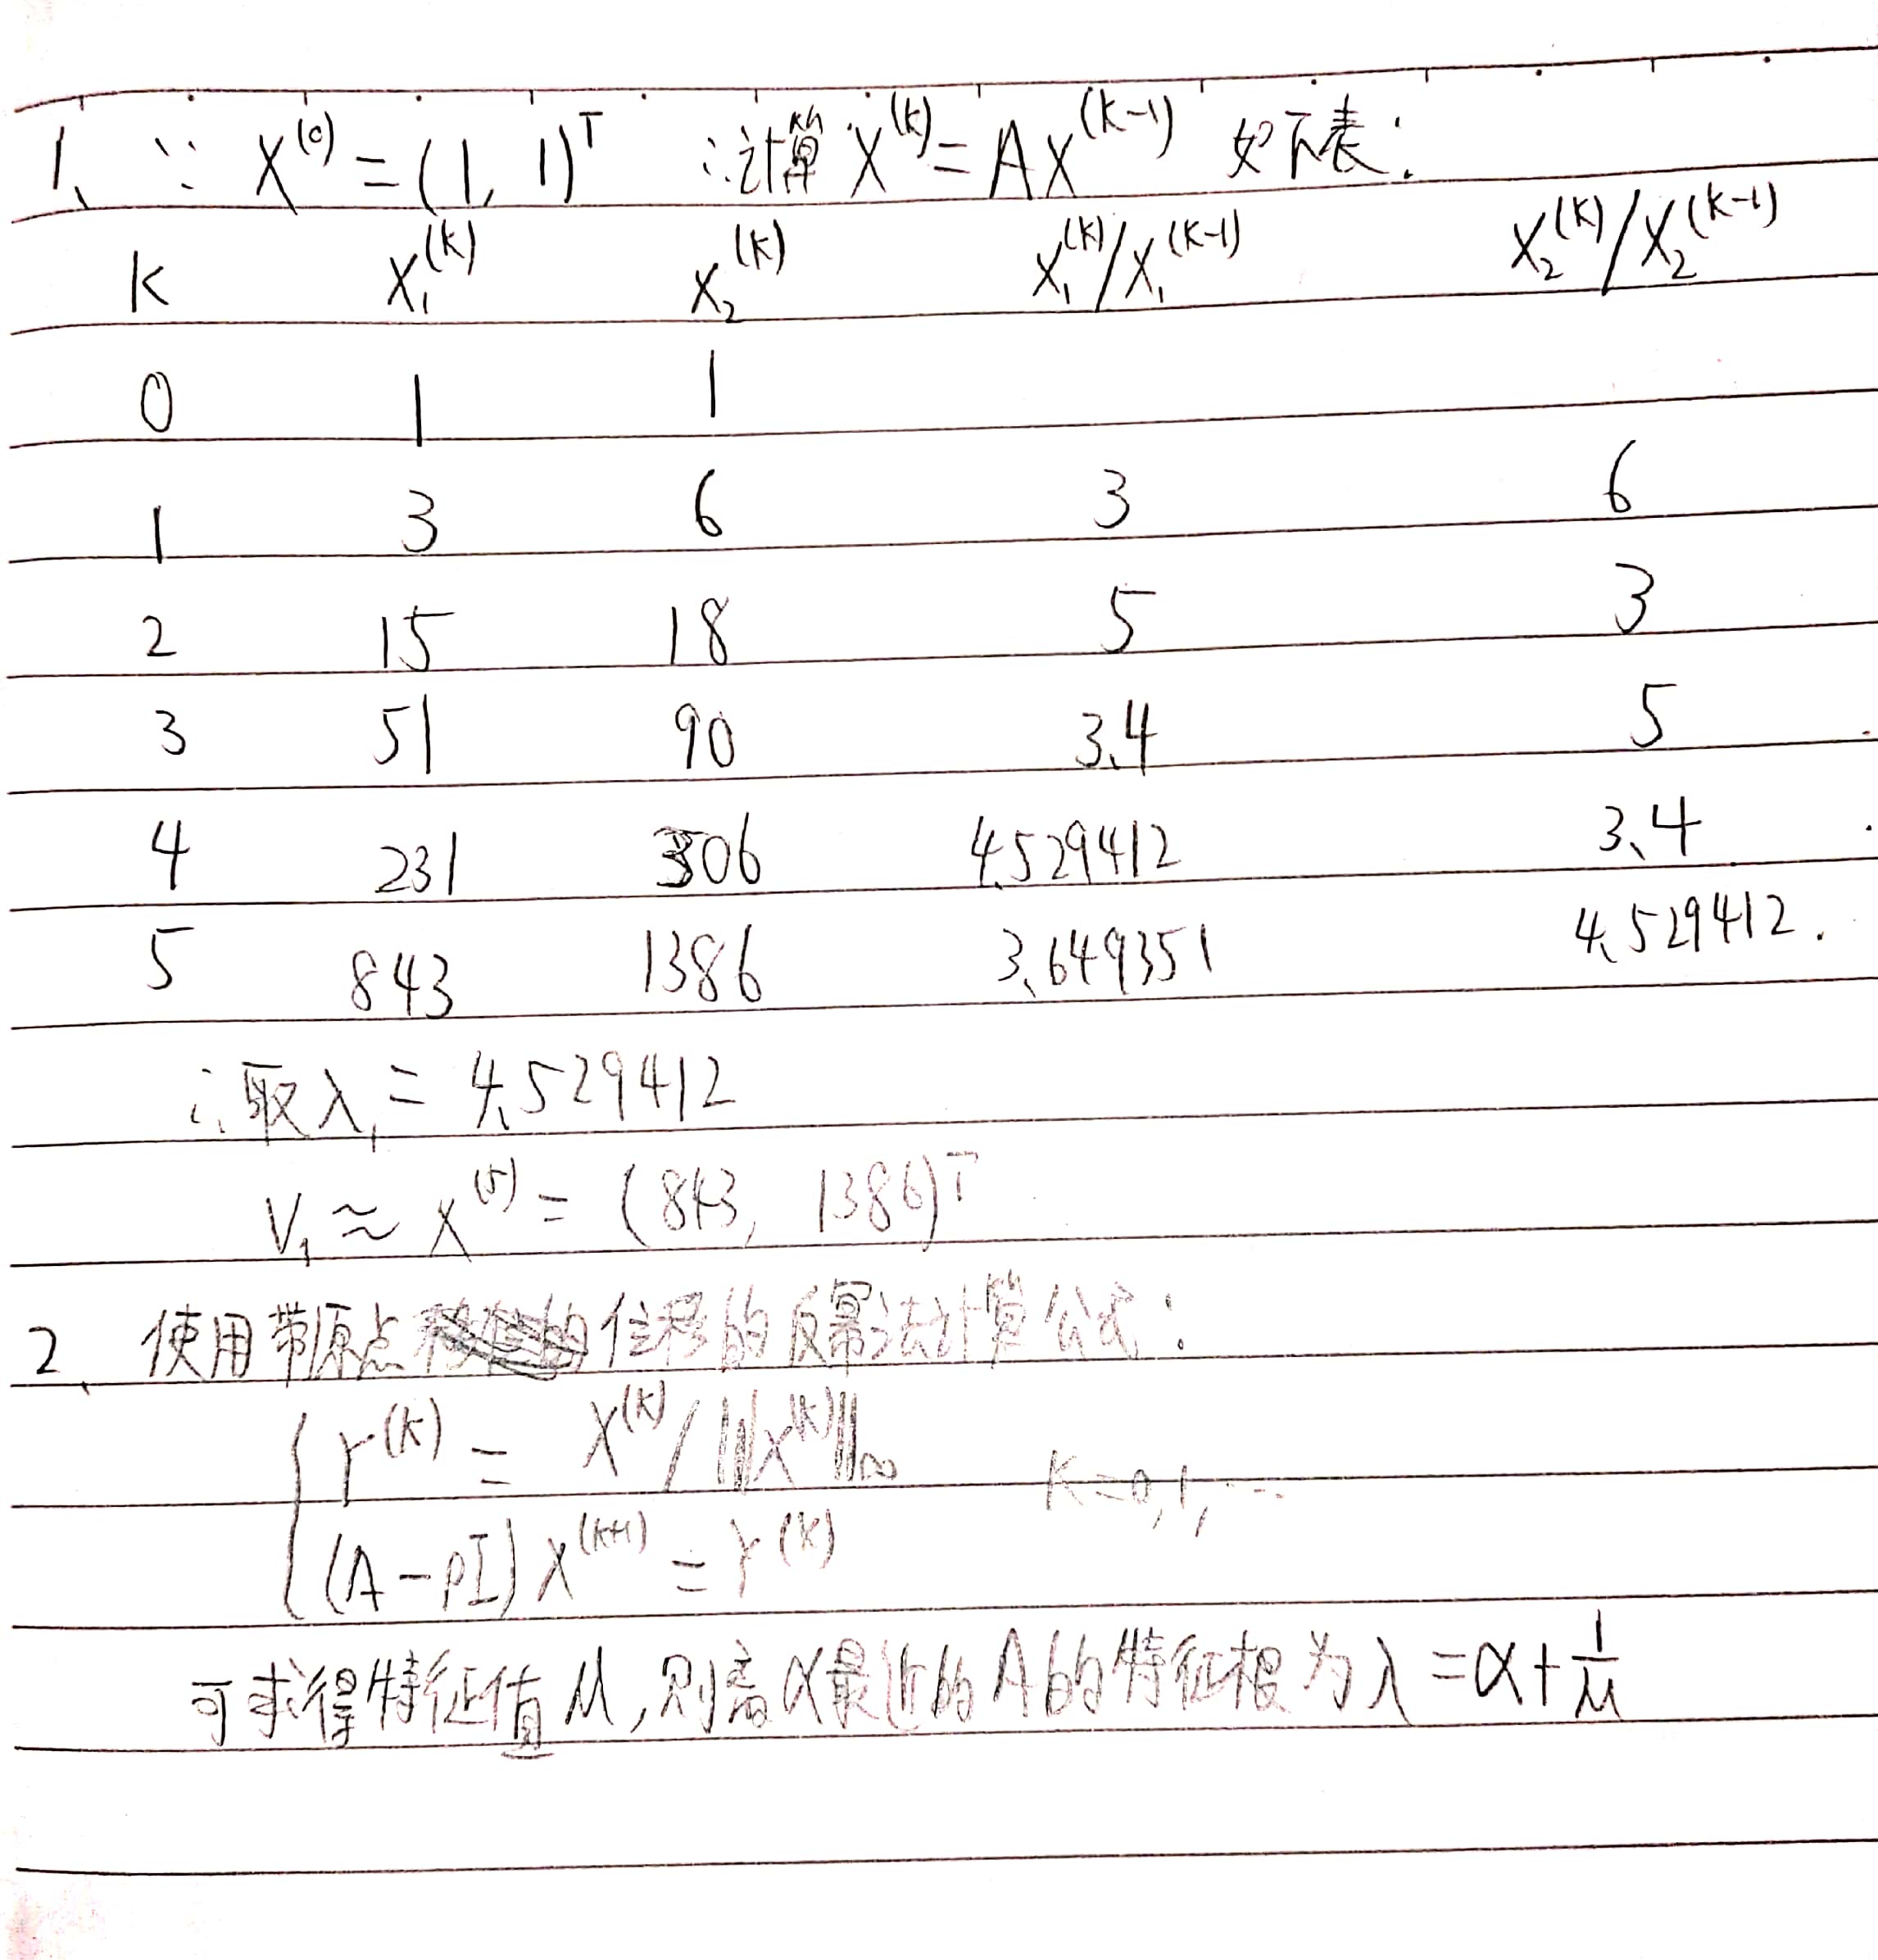 1、∵ X^(0) = (1, 1)^T ∴计算 X^(k) = AX^(k-1) 如下表:
k X₁^(k) X₂^(k) X₁^(k)/X₁^(k-1) X₂^(k)/X₂^(k-1)
0 1 1
1 3 6 3 6
2 15 18 5 3
3 51 90 3.4 5
4 231 306 4.529412 3.4
5 843 1386 3.649351 4.529412.
∴取λ₁ = 4.529412
V₁ ≈ X^(5) = (843, 1386)^T
2、使用带原点位移的反幂法计算公式:
{ Y^(k) = X^(k)/||X^(k)||∞ K=0,1,…
(A-pI)X^(k+1) = Y^(k)
可求得特征值μ,则离α最近的A的特征根为λ=α+1/μ